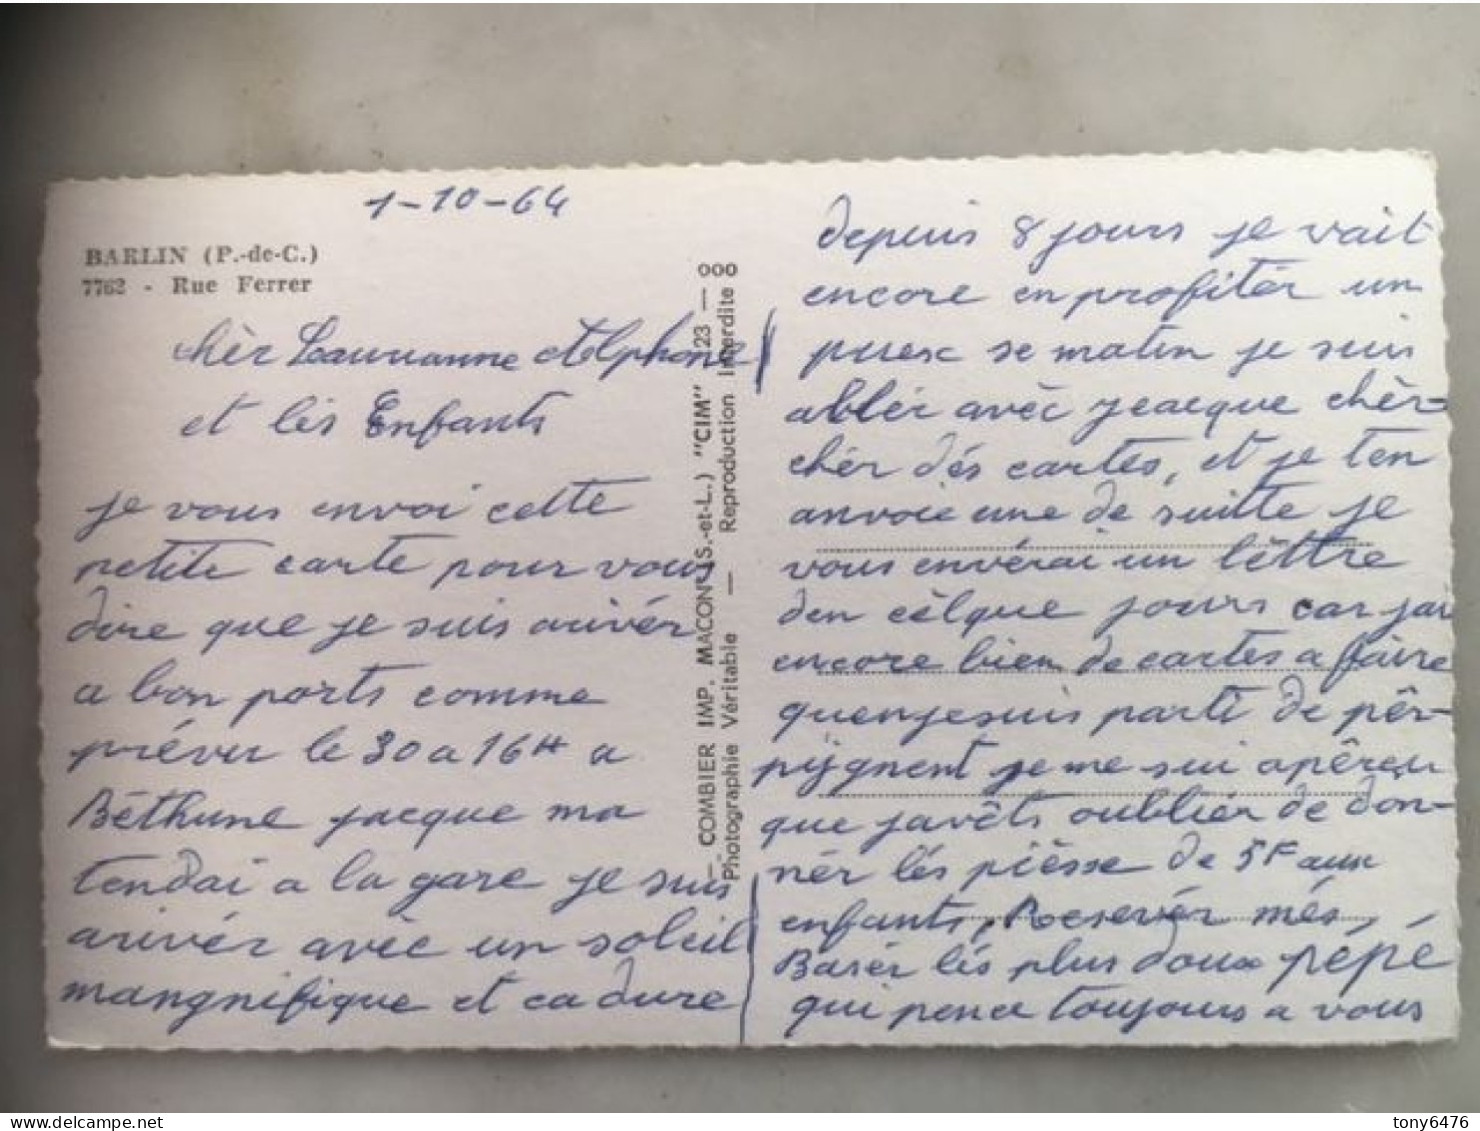 1-10-64
BARLIN (P.-de-C.)
7762 - Rue Ferrer
chèr Laurianne et Alphonse
et lés Enfants
je vous envoi cette
petite carte pour vous
dire que je suis arivér
a bon ports comme
prévu le 30 a 16H a
Béthune jacque ma
tendai a la gare je suis
arivér avèc un soleil
mangnifique et ca dure
— COMBIER IMP. MACON (S.-et-L.) "CIM" T. 23 — 000
Photographie Véritable — Reproduction Interdite
depuis 8 jours je vait
encore en profitér un
puex se matin je suis
allér avèc jeacque chèr-
chér dés cartes, et je ten
anvoie une de suitte je
vous envérai un lêttre
den cèlque jours car jai
encore bien de cartes a faire
quenjesuis parti de pêr-
pignent je me sui apêrçu
que javêts oubliér de don-
nér lés pièsse de 5F aux
enfants, Resevér més,
Basér lés plus doux pépé
qui pence toujours a vous
tony6476